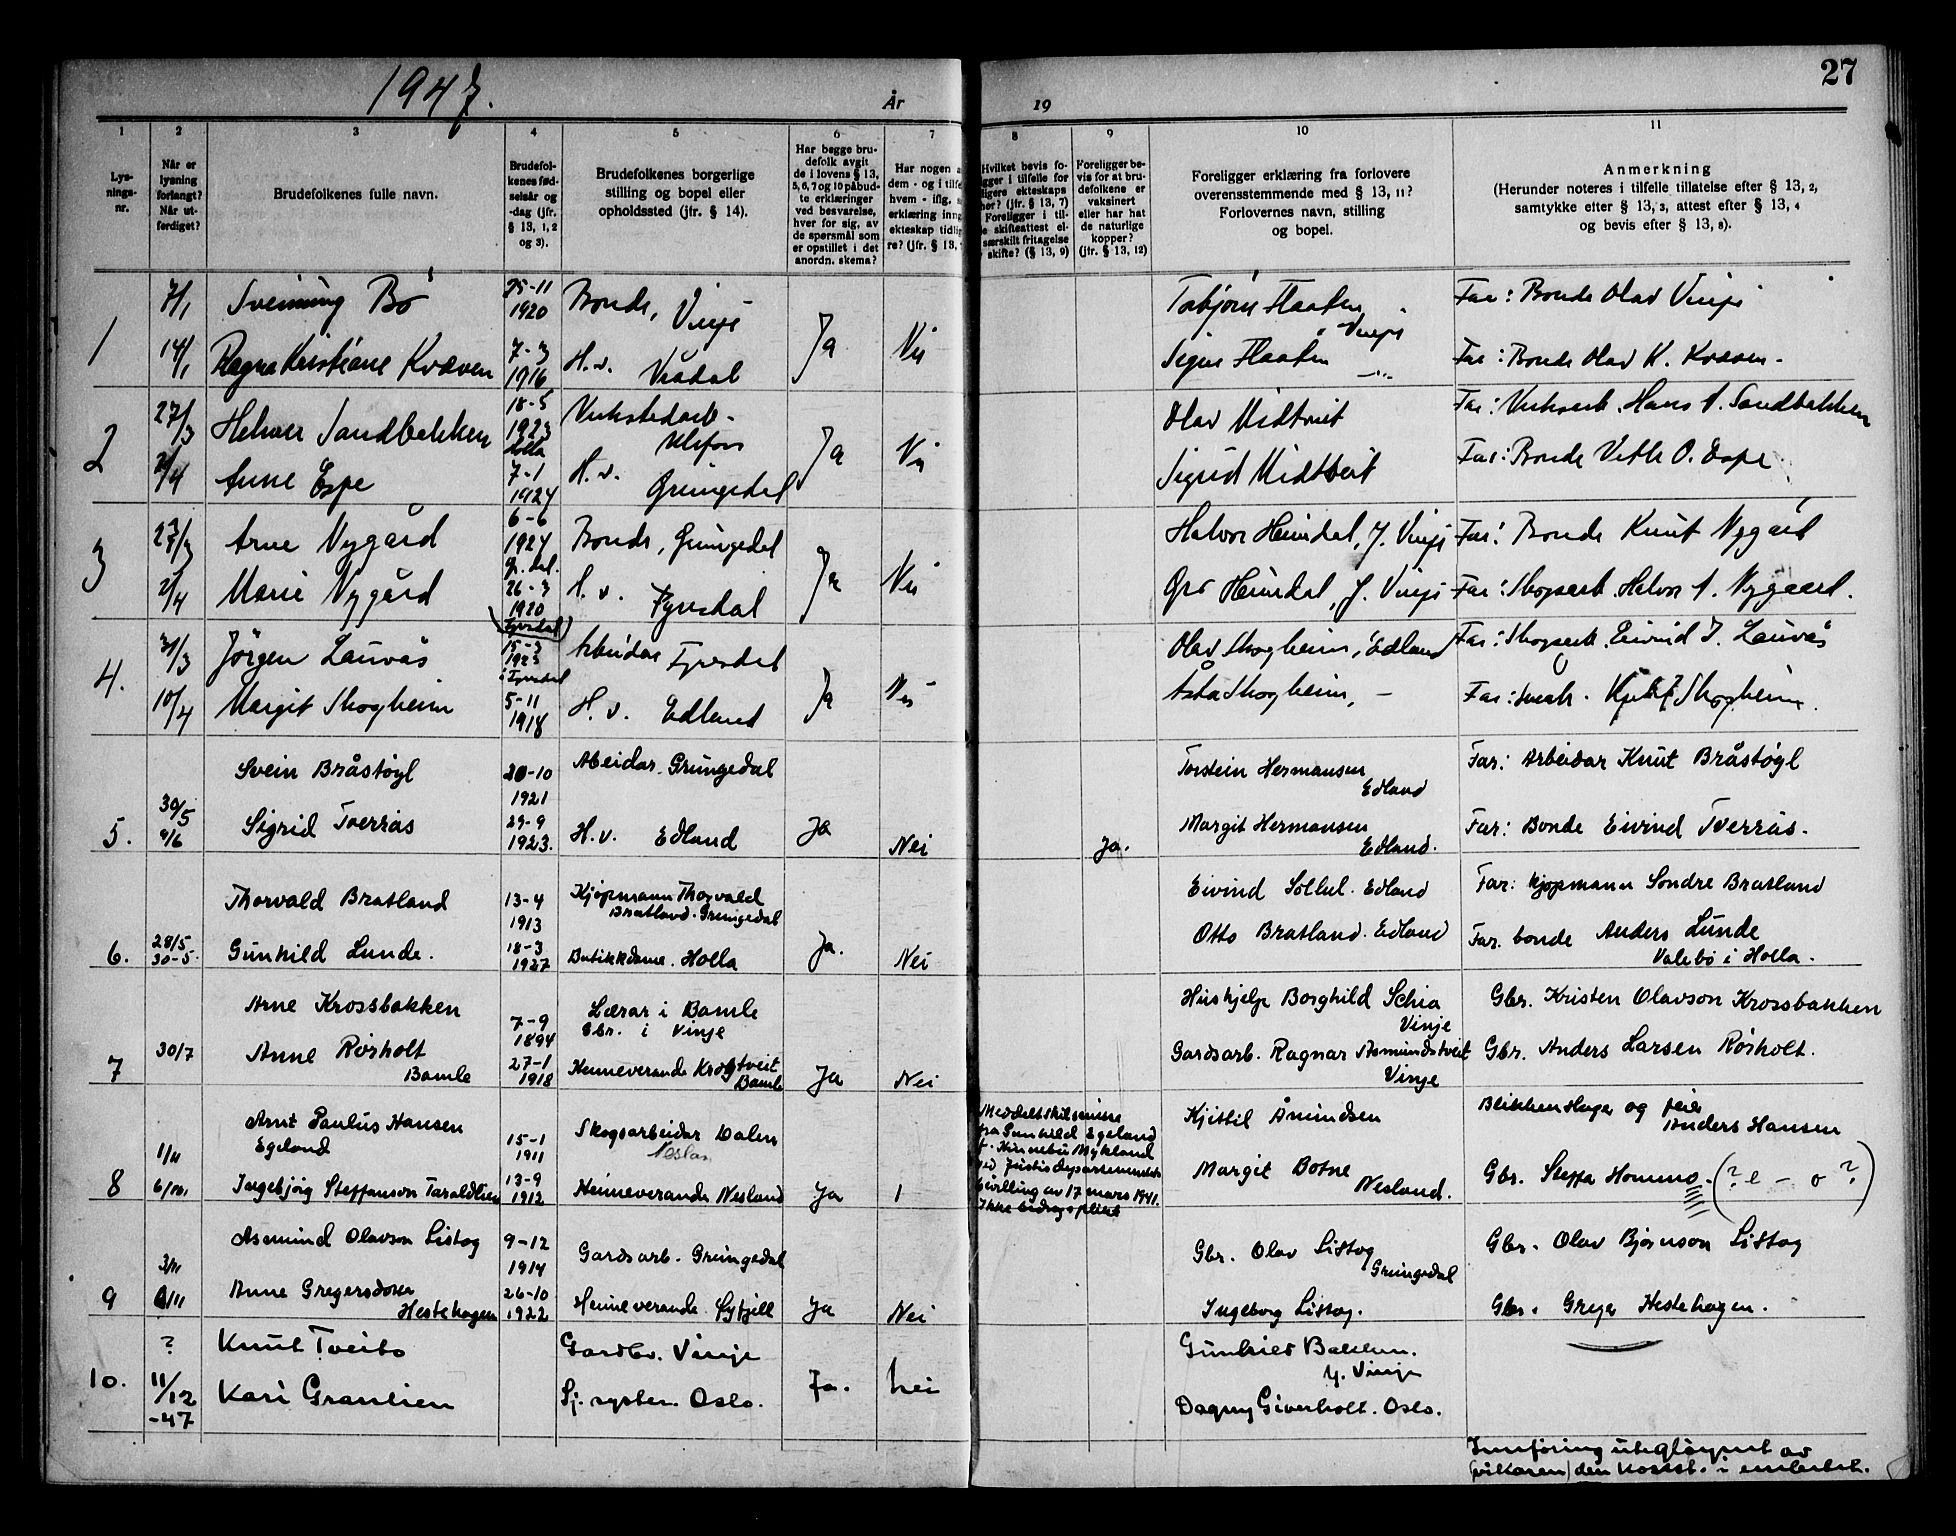 1947.
År
19
27
1
2
3
4
5
6
7
8
9
10
11
Lys-
nings-
nr.
Når er
lysning
forlangt?
Når ut-
ferdiget?
Brudefolkenes fulle navn.
Brudefol-
kenes fød-
selsår og
-dag (jfr.
§ 13, 1, 2
og 3).
Brudefolkenes borgerlige
stilling og bopel eller
opholdssted (jfr. § 14).
Har begge bru-
defolk avgit
de i lovens § 13,
5, 6, 7 og 10 påbud-
te erklæringer
ved besvarelse,
hver for sig, av
de spørsmål som
er opstillet i det
anordn. skema?
Har nogen a
dem - og i tilfe
hvem - iflg. s
erklæring inng
ekteskap tidlig
re? (jfr. § 13,
Hvilket bevis fo-
gger i tilfelle for
ligere ekteskaps
hør? (jfr. § 13, 7)
Foreligger i til-
e skifteattest el-
særskilt fritagelse
skifte? (§ 13, 9)
Foreligger be-
vis for at bru-
defolkene er
vaksinert
eller har hat
de naturlige
kopper?
(jfr. § 13, 12)
Foreligger erklæring fra forlovere
overensstemmende med § 13, 11?
Forlovernes navn, stilling
og bopel.
Anmerkning
(Herunder noteres i tilfelle tillatelse efter § 13, 2,
samtykke efter § 13, 3, attest efter § 13, 4
og bevis efter § 13, 8).
1
7/1
14/1
Sveinung Bö
Ragna Kristiane Kvæven
25-11
1920
7-3
1916
Bonde, Vinje
H.v. Vrådal
Ja
Nei
Torbjörn Flaaten
Vinje
Signe Flaaten
Far: Bonde Olav Vinje
Far: Bonde Olav K. Kvæven -
2
27/3
2/4
Helever Sandbekken
Anne Espe
18-5
1923
Holla
7-1
1924
Verkstedarb-
Ulefoss
H.v. Grungedal
Ja
Nei
Olav Midtveit
Sigrid Midtveit
Far: Verksarb. Hans A. Sandbekken
Far: Bonde Vetle O. Espe
3
27/3
2/4
Arne Nygård
Marie Nygård
6-6
1924
Gr.dal.
26-3
1920
(Fyresdal)
Bonde, Grungedal
H.v. Fyresdal
Ja
Nei
Halvor Heimdal, Y. Vinje
Gro Heimdal, Y. Vinje
Far: Bonde Knut Nygård
Far: Skogsarb. Halvor A. Nygaard.
4.
31/3
10/4
Jörgen Lauvås
Margit Skogheim
15-3
1923
i Fyresdal
5-11
1918
Arbeidar Fyresdal
H.v. Edland
Ja
Nei
Olav Skogheim, Edland
Åsta Skogheim, -
Far: Skogsarb. Eivind J. Lauvås
Far: Kjetil Skogheim.
5.
30/5
4/6
Svein Bråstøyl
Sigrid Tverrås
20-10
1921
29-9
1923.
Abeidar. Grungedal
H.v. Edland
Ja
Nei
Ja.
Torstein Hermansen
Edland
Margit Hermansen
Edland.
Far: Arbeidar Knut Bråstøyl
Far: Bonde Eivind Tverrås.
6.
28/5
30-5.
Thorvald Bratland
Gunhild Lunde.
13-4
1913
18-3
1927
Kjøpmann Thorvald
Bratland. Grungedal
Butikkdame. Holla
Ja.
Nei
Eivind Solhel. Edland
Otto Bratland. Edland
Far: kjøpmann Sondre Bratland
Far. bonde Anders Lunde
Valebø i Holla.
7
30/7
Arne Krossbakken
Anne Rørholt
Bamle
7-9
1894
27-1
1918
Lærar i Bamle
Gbr. i Vinje
Heimeverande Krogtveit
Bamle
Ja
Nei
Huskjelp Borghild Schia
Vinje
Gardsarb. Ragnar Asmundstveit
Vinje
Gbr. Kristen Olavson Krossbakken
Gbr. Anders Larsen Rørholt.
8
1/11
6/11
Arnt Paulus Hansen
Egeland
Ingebjörg Steffenson Taraldlien
15-1
1911
13-9
1912
Skogsarbeidar Dalen
Nesland
Heimeverande Nesland
Ja
1
Meddelt skilsmisse
fra Gunhild Egeland
f. Kinnebu Mykland
ved Justisdepartementets
bevilling av 17 mars 1941.
Ikke bidragspliktt
Kjittil Åmundsen
Margit Botne
Nesland.
Blikkenslager og feier
Anders Hansen
Gbr. Steffa Hommo. (? e - o ?)
9
3/11
6/11
Asmund Olavson Listog
Anne Gregersdotter
Hestehagen
9-12
1914
26-10
1922
Gardsarb. Grungedal
Heimeverande. Lifjell
Ja
Nei
Gbr. Olav Listog
Grungedal
Ingeborg Listog.
Gbr. Olav Bjørnson Listog
Gbr. Greger Hestehagen.
10.
?
11/12
-47
Knut Tveito
Kari Granlien
Gardbr. Vinje
Sj. syster. Oslo.
Ja.
Nei
Gunhild Bakken.
Y. Vinje
Dagny Giverholt. Oslo.
Innføring utegløymt av
(vikaren) den konst. i embetet.